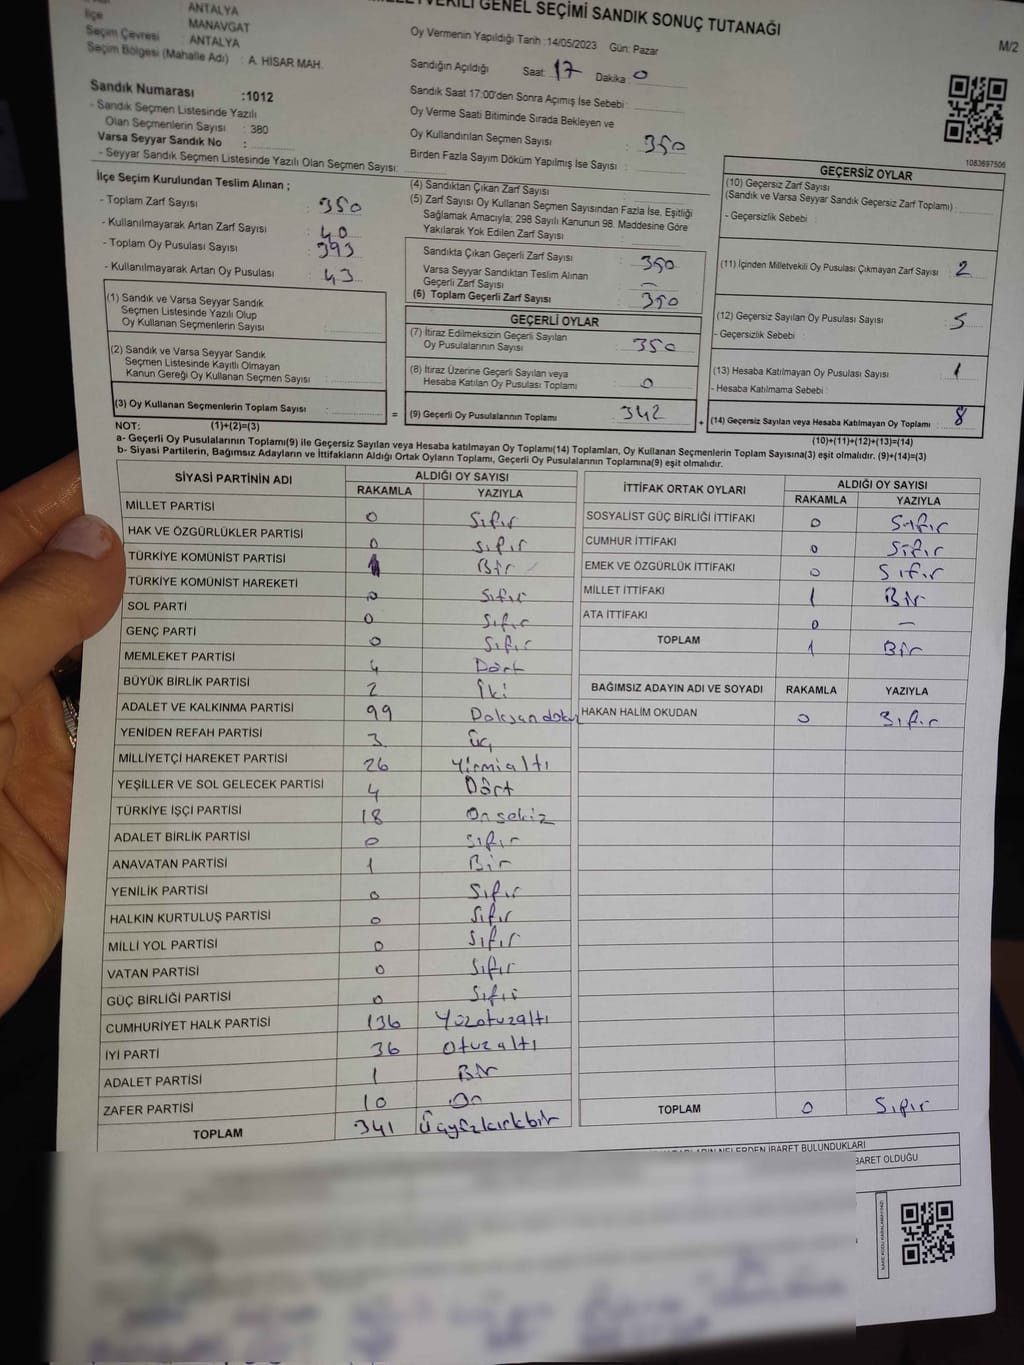 MİLLETVEKİLİ GENEL SEÇİMİ SANDIK SONUÇ TUTANAĞI
M/2
ANTALYA
İlçe MANAVGAT
Seçim Çevresi : ANTALYA
Seçim Bölgesi (Mahalle Adı) : A. HİSAR MAH.
Sandık Numarası :1012
- Sandık Seçmen Listesinde Yazılı
Olan Seçmenlerin Sayısı : 380
Varsa Seyyar Sandık No :
- Seyyar Sandık Seçmen Listesinde Yazılı Olan Seçmen Sayısı:
Oy Vermenin Yapıldığı Tarih :14/05/2023 Gün: Pazar
Sandığın Açıldığı Saat: 17 Dakika 0
Sandık Saat 17:00'den Sonra Açımış İse Sebebi :
Oy Verme Saati Bitiminde Sırada Bekleyen ve
Oy Kullandırılan Seçmen Sayısı : 350
Birden Fazla Sayım Döküm Yapılmış İse Sayısı :
1083697506
İlçe Seçim Kurulundan Teslim Alınan ;
- Toplam Zarf Sayısı : 350
- Kullanılmayarak Artan Zarf Sayısı : 40
- Toplam Oy Pusulası Sayısı : 393
- Kullanılmayarak Artan Oy Pusulası : 43
(1) Sandık ve Varsa Seyyar Sandık
Seçmen Listesinde Yazılı Olup
Oy Kullanan Seçmenlerin Sayısı :
(2) Sandık ve Varsa Seyyar Sandık
Seçmen Listesinde Kayıtlı Olmayan
Kanun Gereği Oy Kullanan Seçmen Sayısı :
(3) Oy Kullanan Seçmenlerin Toplam Sayısı :
(4) Sandıktan Çıkan Zarf Sayısı :
(5) Zarf Sayısı Oy Kullanan Seçmen Sayısından Fazla İse, Eşitliği
Sağlamak Amacıyla; 298 Sayılı Kanunun 98. Maddesine Göre
Yakılarak Yok Edilen Zarf Sayısı :
Sandıkta Çıkan Geçerli Zarf Sayısı : 350
Varsa Seyyar Sandıktan Teslim Alınan
Geçerli Zarf Sayısı : –
(6) Toplam Geçerli Zarf Sayısı : 350
GEÇERLİ OYLAR
(7) İtiraz Edilmeksizin Geçerli Sayılan
Oy Pusulalarının Sayısı : 350
(8) İtiraz Üzerine Geçerli Sayılan veya
Hesaba Katılan Oy Pusulası Toplamı : 0
= (9) Geçerli Oy Pusulalarının Toplamı : 342
GEÇERSİZ OYLAR
(10) Geçersiz Zarf Sayısı
(Sandık ve Varsa Seyyar Sandık Geçersiz Zarf Toplamı) :
- Geçersizlik Sebebi :
(11) İçinden Milletvekili Oy Pusulası Çıkmayan Zarf Sayısı : 2
(12) Geçersiz Sayılan Oy Pusulası Sayısı : 5
- Geçersizlik Sebebi :
(13) Hesaba Katılmayan Oy Pusulası Sayısı : 1
- Hesaba Katılmama Sebebi :
+ (14) Geçersiz Sayılan veya Hesaba Katılmayan Oy Toplamı : 8
NOT: (1)+(2)=(3) (10)+(11)+(12)+(13)=(14)
a- Geçerli Oy Pusulalarının Toplamı(9) ile Geçersiz Sayılan veya Hesaba katılmayan Oy Toplamı(14) Toplamları, Oy Kullanan Seçmenlerin Toplam Sayısına(3) eşit olmalıdır. (9)+(14)=(3)
b- Siyasi Partilerin, Bağımsız Adayların ve İttifakların Aldığı Ortak Oyların Toplamı, Geçerli Oy Pusulalarının Toplamına(9) eşit olmalıdır.
SİYASİ PARTİNİN ADI ALDIĞI OY SAYISI
RAKAMLA YAZIYLA
MİLLET PARTİSİ 0 Sıfır
HAK VE ÖZGÜRLÜKLER PARTİSİ 0 Sıfır
TÜRKİYE KOMÜNİST PARTİSİ 1 Bir
TÜRKİYE KOMÜNİST HAREKETİ 0 Sıfır
SOL PARTİ 0 Sıfır
GENÇ PARTİ 0 Sıfır
MEMLEKET PARTİSİ 4 Dört
BÜYÜK BİRLİK PARTİSİ 2 İki
ADALET VE KALKINMA PARTİSİ 99 Doksandoku
YENİDEN REFAH PARTİSİ 3 Üç
MİLLİYETÇİ HAREKET PARTİSİ 26 Yirmialtı
YEŞİLLER VE SOL GELECEK PARTİSİ 4 Dört
TÜRKİYE İŞÇİ PARTİSİ 18 Onsekiz
ADALET BİRLİK PARTİSİ 0 Sıfır
ANAVATAN PARTİSİ 1 Bir
YENİLİK PARTİSİ 0 Sıfır
HALKIN KURTULUŞ PARTİSİ 0 Sıfır
MİLLİ YOL PARTİSİ 0 Sıfır
VATAN PARTİSİ 0 Sıfır
GÜÇ BİRLİĞİ PARTİSİ 0 Sıfır
CUMHURİYET HALK PARTİSİ 136 Yüzotuzaltı
İYİ PARTİ 36 Otuzaltı
ADALET PARTİSİ 1 Bir
ZAFER PARTİSİ 10 On
TOPLAM 341 Üçyüzkırkbir
İTTİFAK ORTAK OYLARI ALDIĞI OY SAYISI
RAKAMLA YAZIYLA
SOSYALİST GÜÇ BİRLİĞİ İTTİFAKI 0 Sıfır
CUMHUR İTTİFAKI 0 Sıfır
EMEK VE ÖZGÜRLÜK İTTİFAKI 0 Sıfır
MİLLET İTTİFAKI 1 Bir
ATA İTTİFAKI 0 –
TOPLAM 1 Bir
BAĞIMSIZ ADAYIN ADI VE SOYADI RAKAMLA YAZIYLA
HAKAN HALİM OKUDAN 0 Sıfır
TOPLAM 0 Sıfır
NELERDEN İBARET BULUNDUKLARI
BARET OLDUĞU